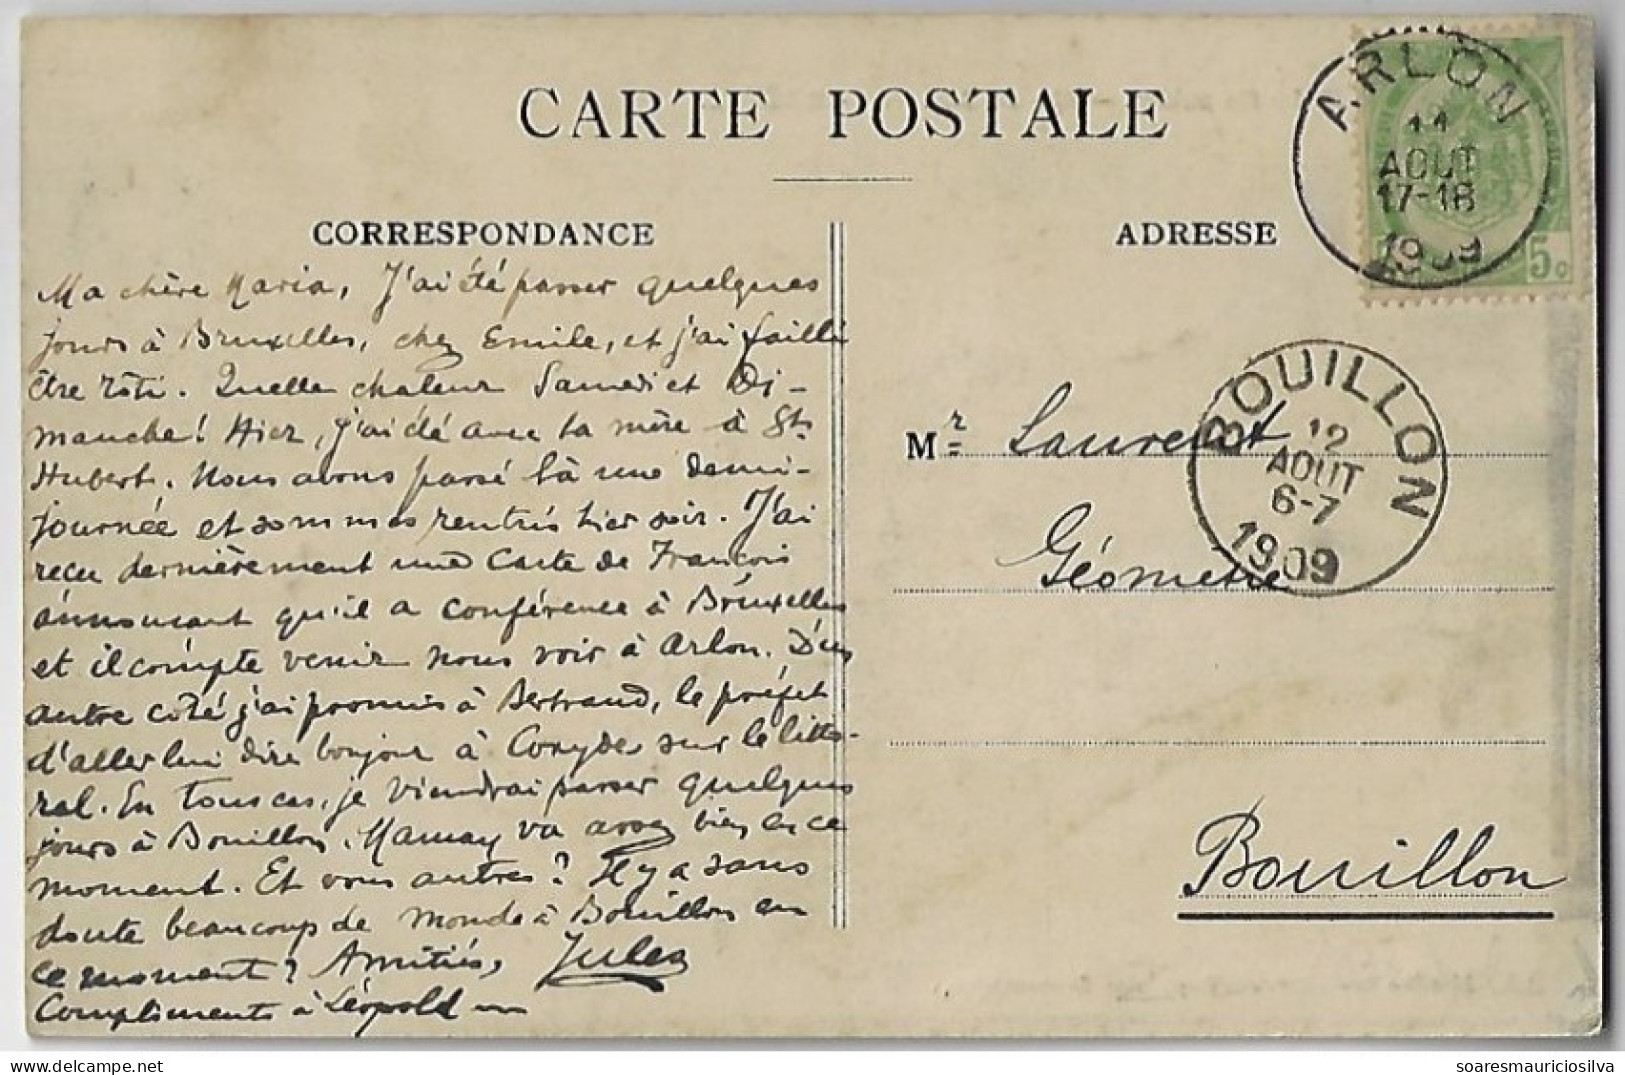 CARTE POSTALE
CORRESPONDANCE
ADRESSE
ARLON
11
AOUT
17-18
1909
5c
BOUILLON
12
AOUT
6-7
1909
Ma chère Maria, J'ai été passer quelques
jours à Bruxelles, chez Emile, et j'ai failli
être rôti. Quelle chaleur Samedi et Di-
manche! Hier, j'ai été avec ta mère à St.
Hubert. Nous avons passé là une demi-
journée et sommes rentrés hier soir. J'ai
reçu dernièrement une carte de François
annonçant qu'il a conférence à Bruxelles
et il compte venir nous voir à Arlon. D'un
autre côté j'ai promis à Bertrand, le préfet
d'aller lui dire bonjour à Coxyde sur le litto-
ral. En tous cas, je viendrai passer quelques
jours à Bouillon. Maman va assez bien en ce
moment. Et vous autres? Il y a sans
doute beaucoup de monde à Bouillon en
ce moment? Amitiés, Jules
Compliments à Léopold
Mr Laurent
Géomètre
Bouillon
soaresmauriciosilva